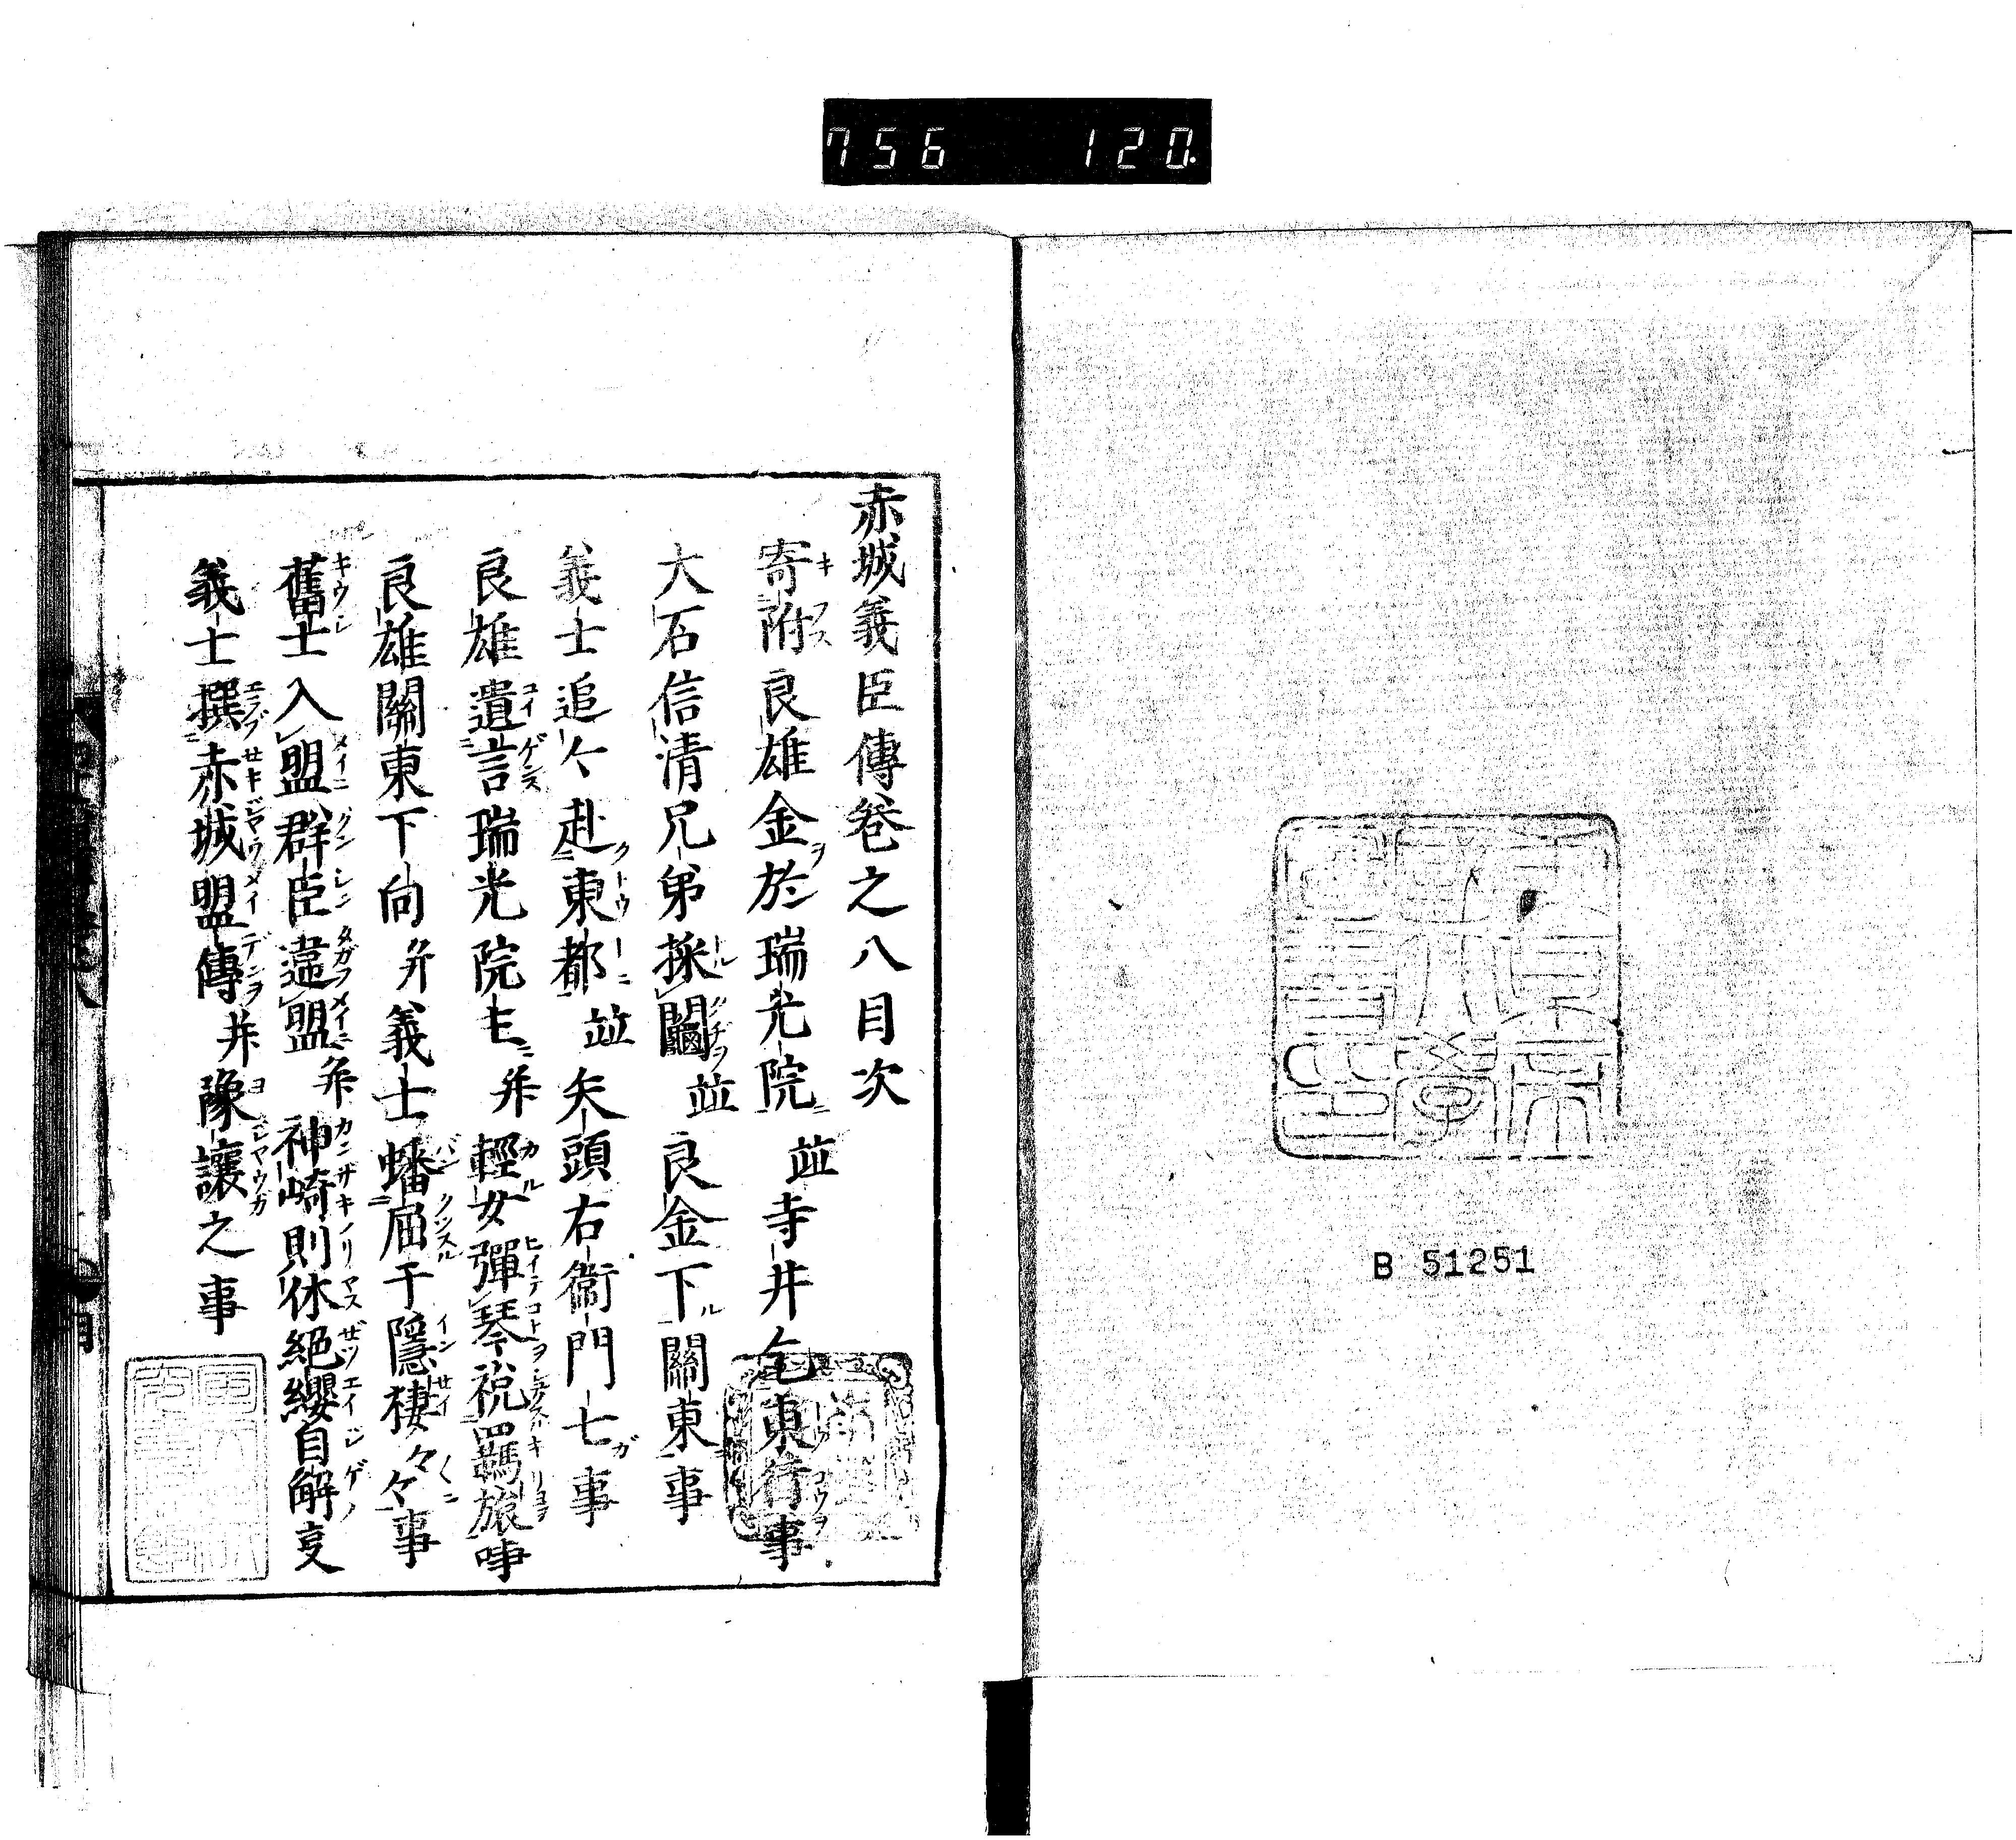 756 120.
B 51251
赤城義臣傳巻之八目次
寄附良雄金於瑞光院並寺井乞東行事
大石信清兄弟採鬮並良金下關東事
義士追々赴東都並矢頭右衛門七事
良雄遺言瑞光院主并輕女彈琴祝羈旅事
良雄關東下向并義士蟠屈于隱棲々々事
舊士入盟群臣違盟并神崎則休絕纓自解叓
義士撰赤城盟傳并豫讓之事